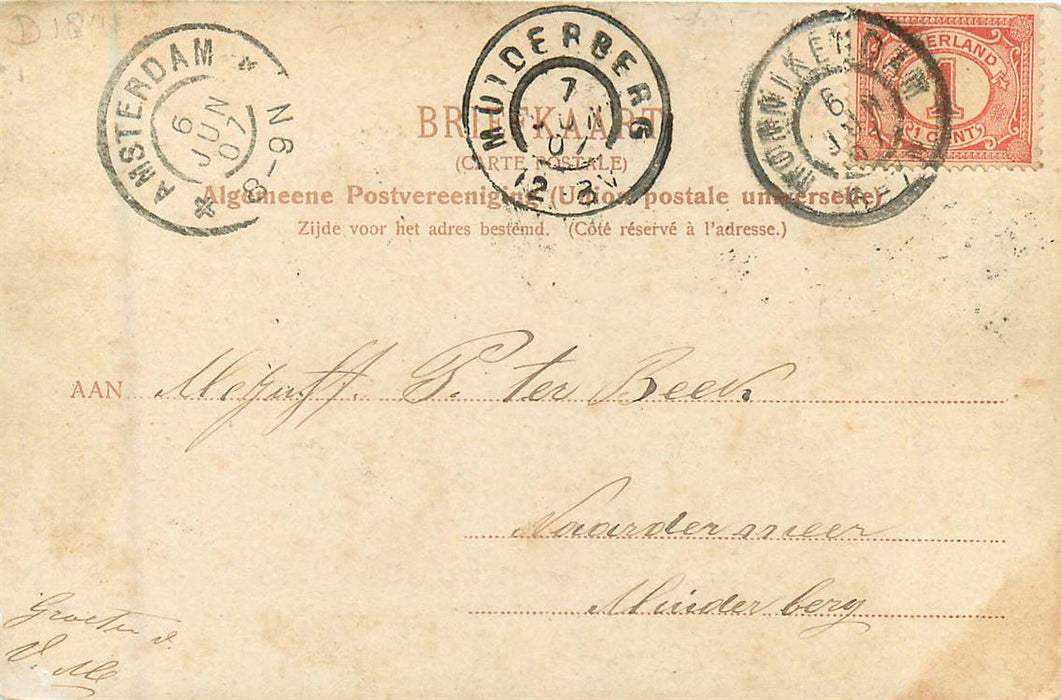 D 184
AMSTERDAM
6
JUN
07
N 6-9
MUIDERBERG
7
JUN
07
12-3 V
MONNIKENDAM
6
JUN
NEDERLAND
1
1 CENT
BRIEFKAART
(CARTE POSTALE)
Algemeene Postvereeniging (Union postale universelle)
Zijde voor het adres bestemd. (Côté réservé à l'adresse.)
AAN Mejuff. P. ter Beek
Naardermeer
Muiderberg
Groeten v.
V. M